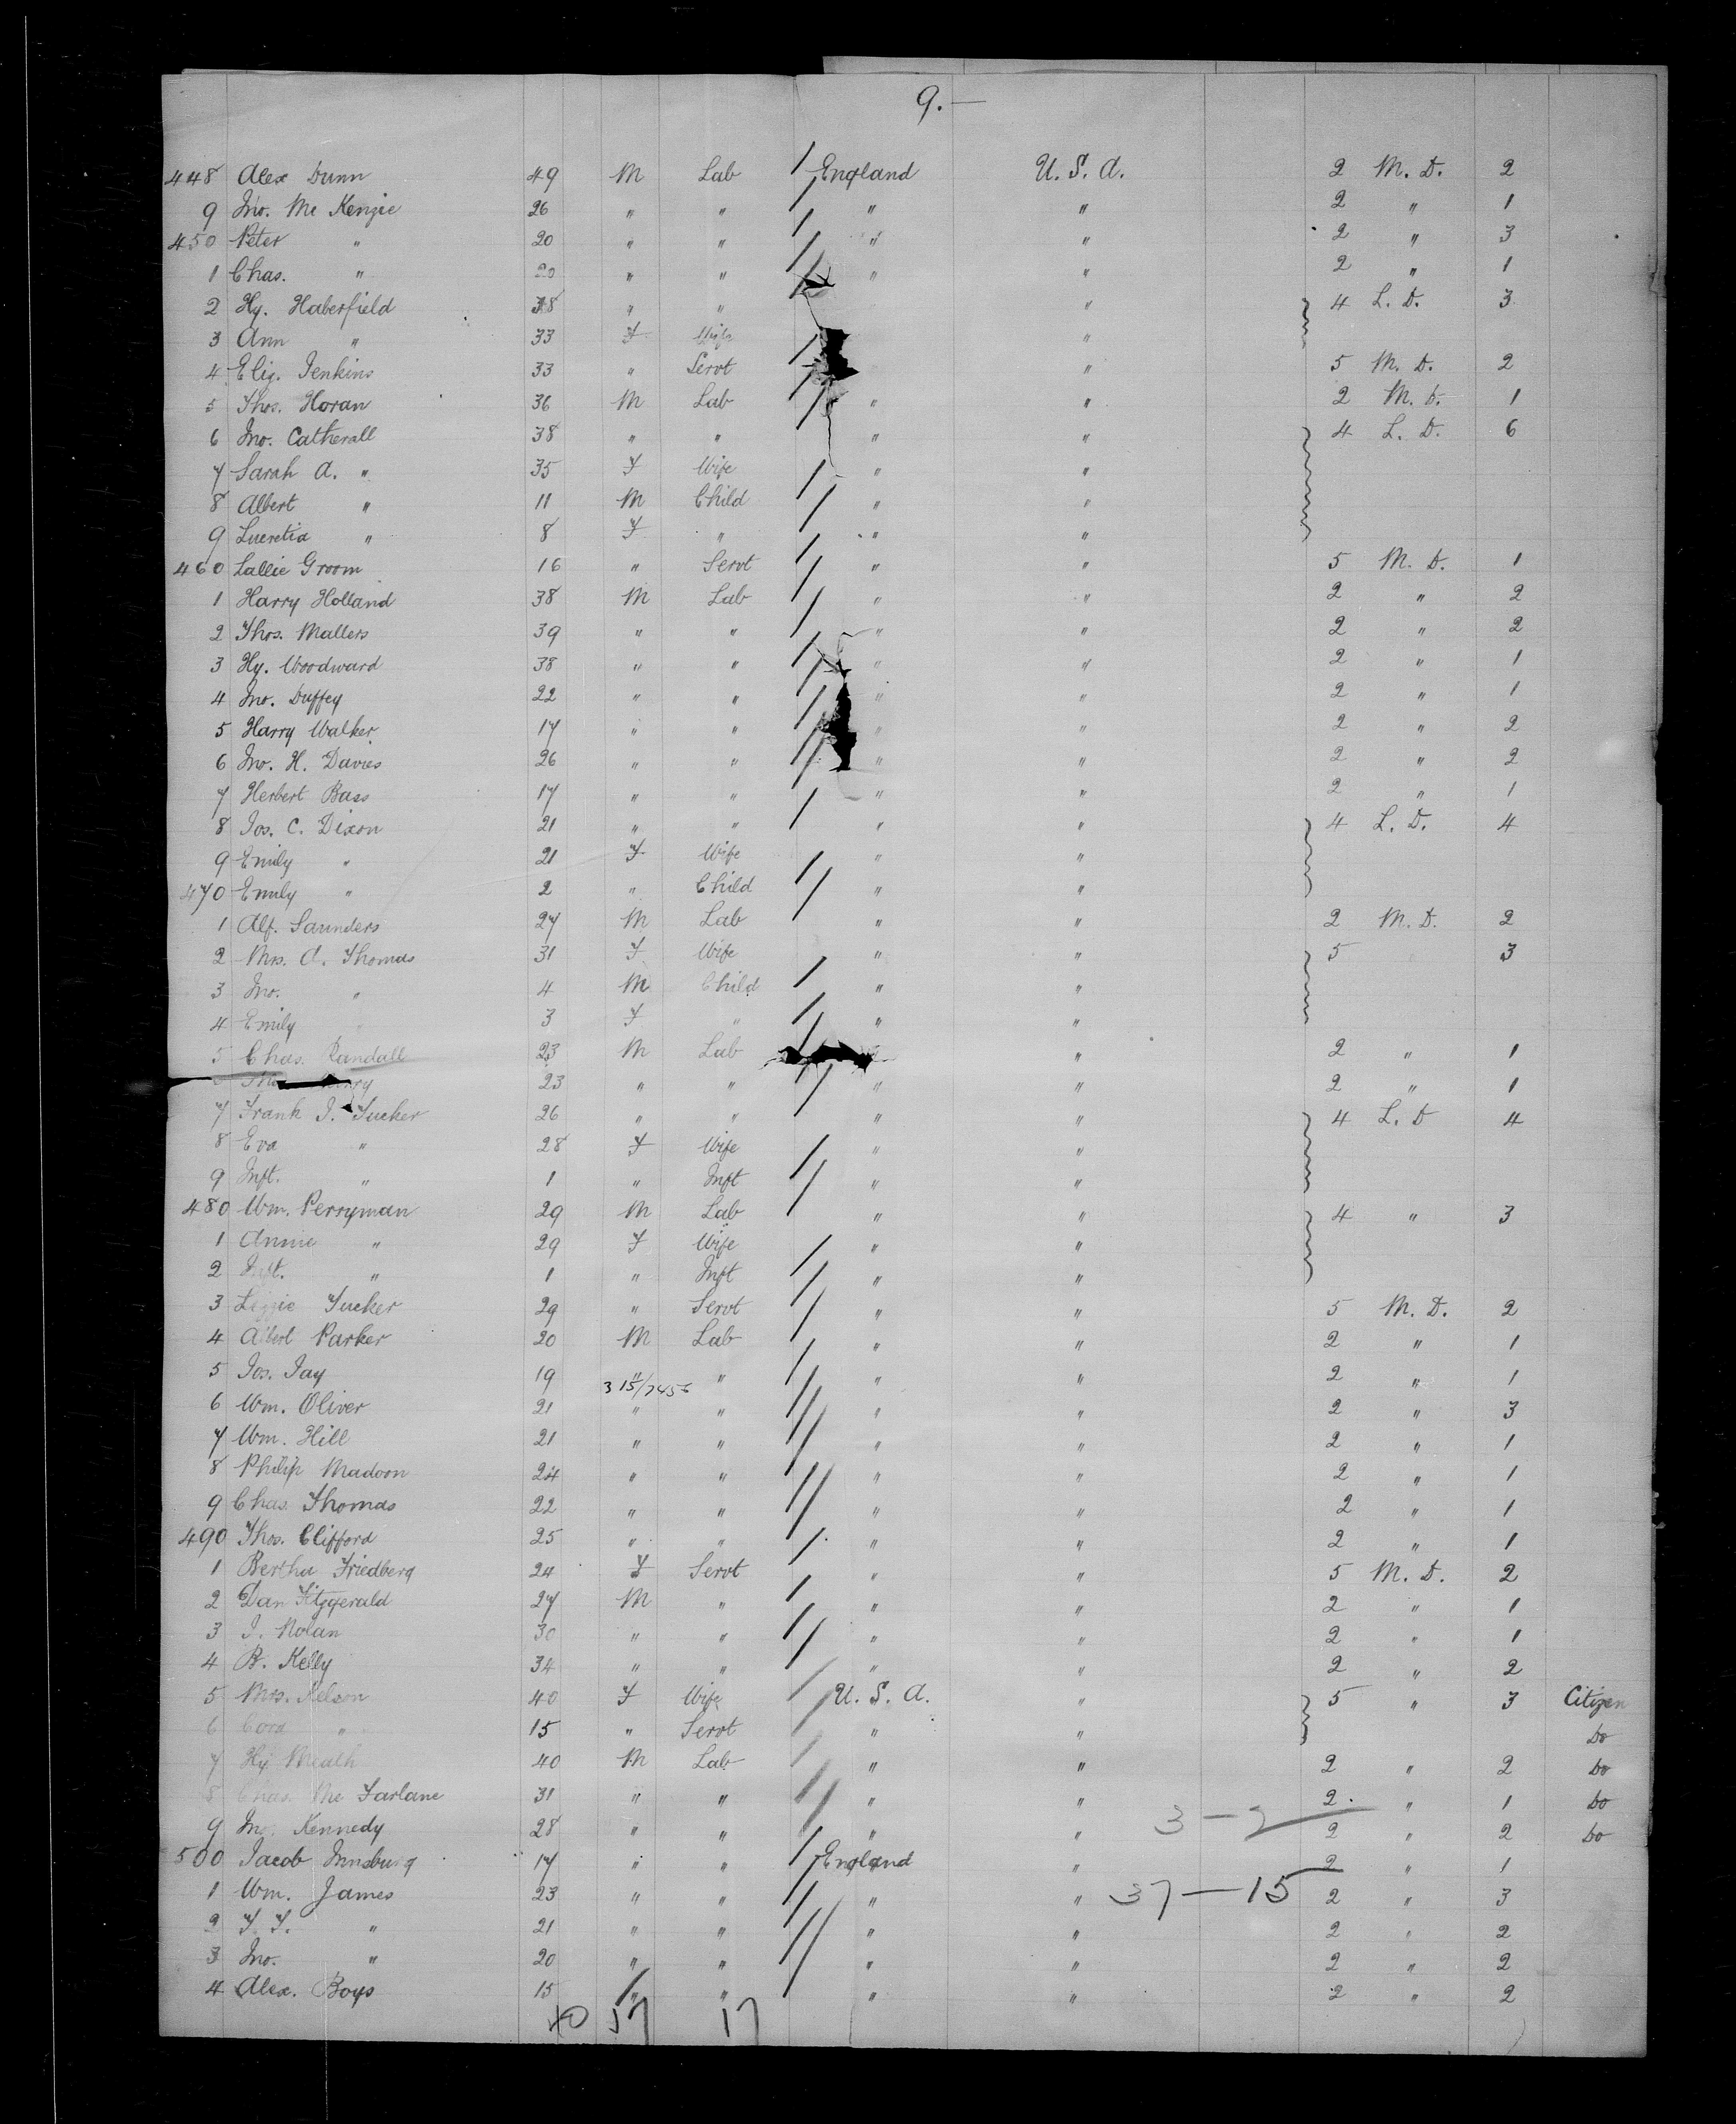 9.—
448 Alex Dunn 49 M Lab England U. S. A. 2 M. D. 2
9 Jno. Mc Kenzie 26 " " " " 2 " 1
450 Peter " 20 " " " " 2 " 3
1 Chas. " 20 " " " " 2 " 1
2 Hy. Haberfield 38 " " " 4 L. D. 3
3 Ann " 33 F Wife "
4 Eliz. Jenkins 33 " Servt " 5 M. D. 2
5 Thos. Horan 36 M Lab " " 2 M. D. 1
6 Jno. Catherall 38 " " " " 4 L. D. 6
7 Sarah A. " 35 F Wife " "
8 Albert " 11 M Child " "
9 Lucretia " 8 F " " "
460 Lallie Groom 16 " Servt " " 5 M. D. 1
1 Harry Holland 38 M Lab " " 2 " 2
2 Thos. Mallers 39 " " " " 2 " 2
3 Hy. Woodward 38 " " " " 2 " 1
4 Jno. Duffey 22 " " " " 2 " 1
5 Harry Walker 17 " " " " 2 " 2
6 Jno. H. Davies 26 " " " " 2 " 2
7 Herbert Bass 17 " " " " 2 " 1
8 Jos. C. Dixon 21 " " " " 4 L. D. 4
9 Emily " 21 F Wife " "
470 Emily " 2 " Child " "
1 Alf. Saunders 27 M Lab " " 2 M. D. 2
2 Mrs. A. Thomas 31 F Wife " " 5 3
3 Jno. " 4 M Child " "
4 Emily 3 F " " "
5 Chas. Randall 23 M Lab " 2 " 1
23 " " " " 2 " 1
7 Frank J. Tucker 26 " " " " 4 L. D 4
8 Eva " 28 F Wife " "
9 Inft. " 1 " Inft " "
480 Wm. Perryman 29 M Lab " " 4 " 3
1 Annie " 29 F Wife " "
2 Inft. " 1 " Inft " "
3 Lizzie Tucker 29 " Servt " " 5 M. D. 2
4 Albert Parker 20 M Lab " " 2 " 1
5 Jos. Jay 19 " " " " 2 " 1
3 15/7456
6 Wm. Oliver 21 " " " " 2 " 3
7 Wm. Hill 21 " " " " 2 " 1
8 Philip Madoon 24 " " " " 2 " 1
9 Chas. Thomas 22 " " " " 2 " 1
490 Thos. Clifford 25 " " " " 2 " 1
1 Bertha Friedberg 24 F Servt " " 5 M. D. 2
2 Dan Fitzgerald 27 M " " " 2 " 1
3 J. Nolan 30 " " " " 2 " 1
4 B. Kelly 34 " " " " 2 " 2
5 Mrs. Nelson 40 F Wife U. S. A. " 5 " 3 Citizen
6 Cora " 15 " Servt " " Do
7 Hy. Meath 40 M Lab " " 2 " 2 Do
8 Chas. Mc Farlane 31 " " " " 2 " 1 Do
3 — 2
9 Jno. Kennedy 28 " " " " 2 " 2 Do
500 Jacob Innsburg 17 " " England " 2 " 1
1 Wm. James 23 " " " " 2 " 3
37 — 15
2 T. T. " 21 " " " " 2 " 2
3 Jno. " 20 " " " " 2 " 2
4 Alex. Boys 15 " " " " 2 " 2
40 57 17